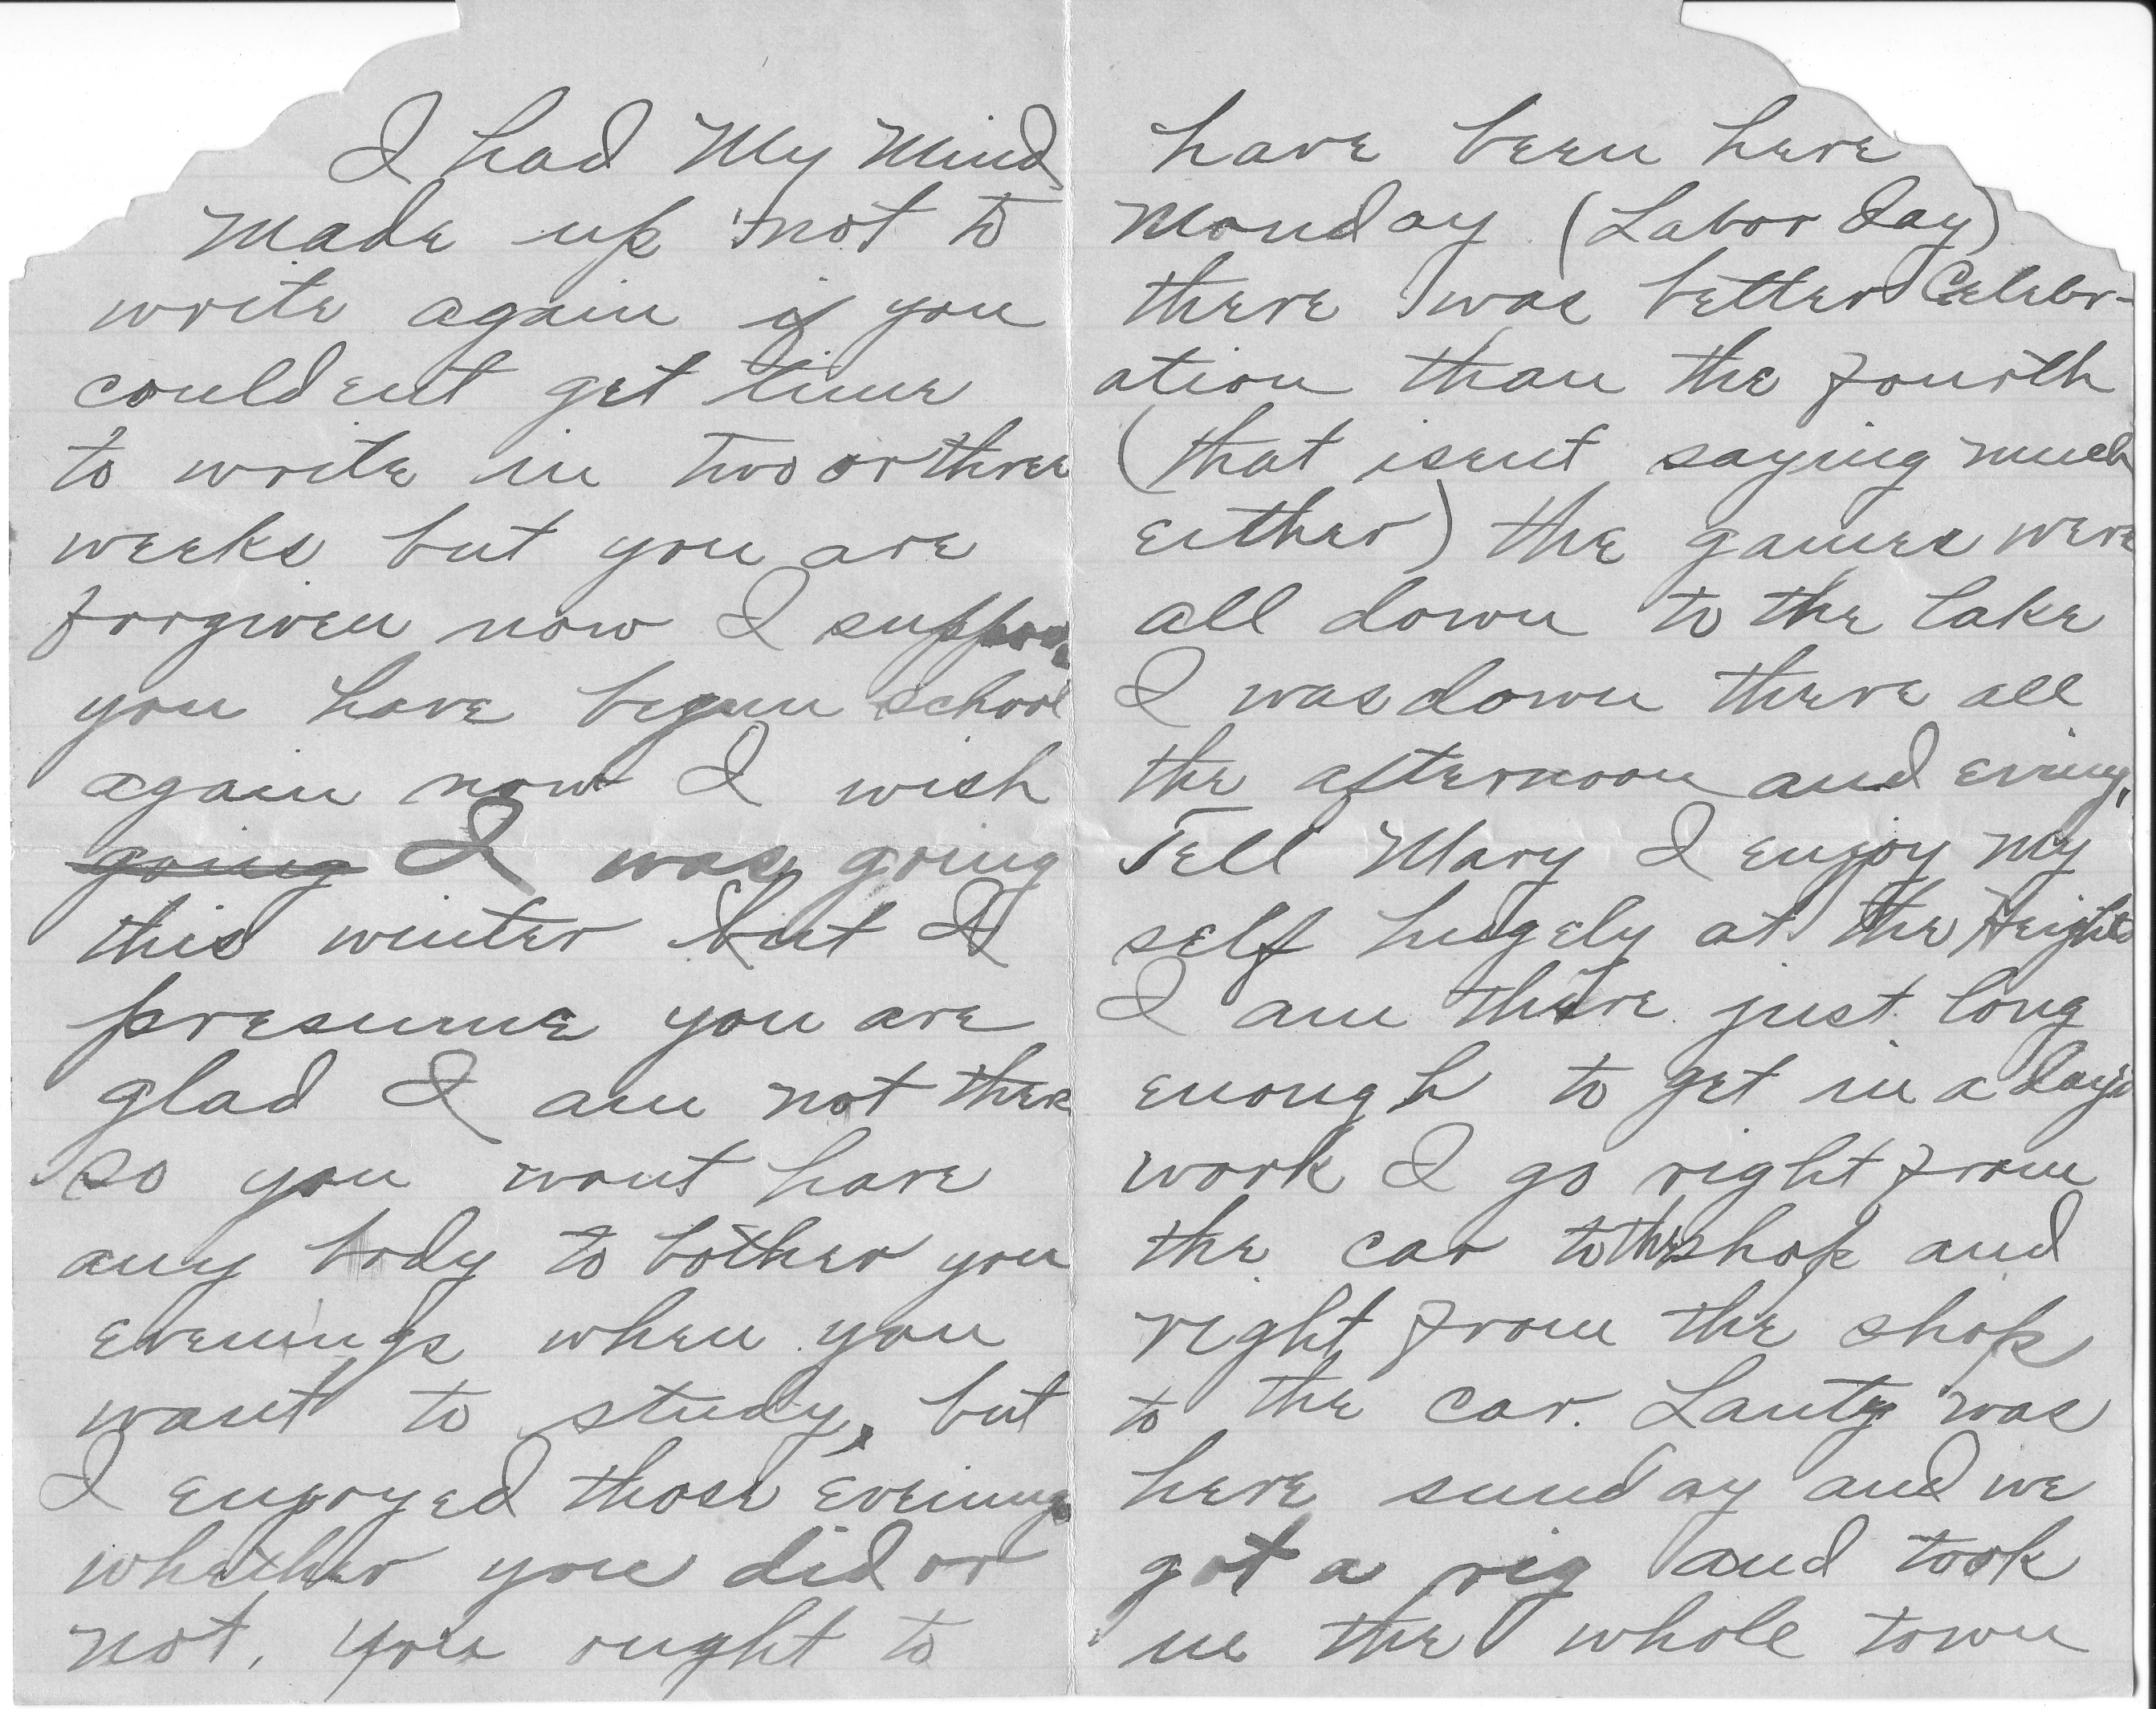 I had My Mind
Made up not to
write again if you
couldent get time
to write in two or three
weeks but you are
forgiven now I suppose
you have begun school
again now I wish
going I was going
this winter but I
presume you are
glad I am not there
so you wont have
any body to bother you
evenings when you
want to study, but
I enjoyed those evenings
whether you did or
not, you ought to
have been here
Monday (Labor Day)
there was better Celebr-
ation than the fourth
(that isent saying much
either) the games were
all down to the lake
I was down there all
the afternoon and
Tell Mary I enjoy my
self hugely at the Heights
I am there just long
enough to get in a days
work I go right from
the car to the shop and
right from the shop
to the car. Lanty was
here sunday and we
got a rig and took
in the whole town